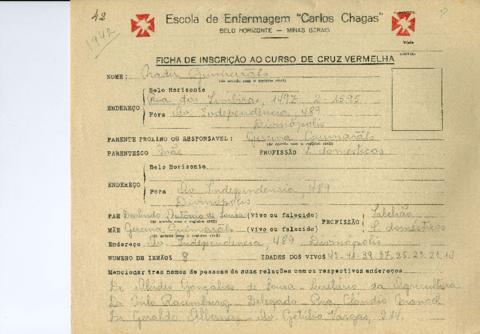 42
1942
Escola de Enfermagem "Carlos Chagas"
BELO HORIZONTE — MINAS GERAIS
FICHA DE INSCRIÇÃO AO CURSO DE CRUZ VERMELHA
NOME: Guimarães
(de acordo com o registro civil)
Belo Horizonte
Rua dos Timbiras, 1497 - 2-1595
ENDEREÇO
Fóra Av. Independência, 489
Divinópolis
PARENTE PROXIMO OU RESPONSAVEL: Gercina Guimarães
(de acordo com o registro civil)
PARENTESCO Mãe PROFISSÃO S. domésticos
Belo Horizonte
ENDEREÇO
Fóra Av. Independência, 489
Divinópolis
PAE Antônio de Sousa (Vivo ou falecido) PROFISSÃO Tabelião
(de acordo com o registro civil)
MÃE Gercina Guimarães (Vivo ou falecido) S. domésticos
(de acordo com o registro civil)
Endereço Av. Independência, 489 Divinópolis
NUMERO DE IRMÃOS 8 IDADES DOS VIVOS
Mencionar tres nomes de pessoas de suas relações com os respectivos endereços
Dr. Alcides Gonçalves de Sousa - Secretário da Agricultura
Delegado - Rua Cláudio Manoel
Dr. Geraldo Albernaz - Av. Getúlio Vargas, 214